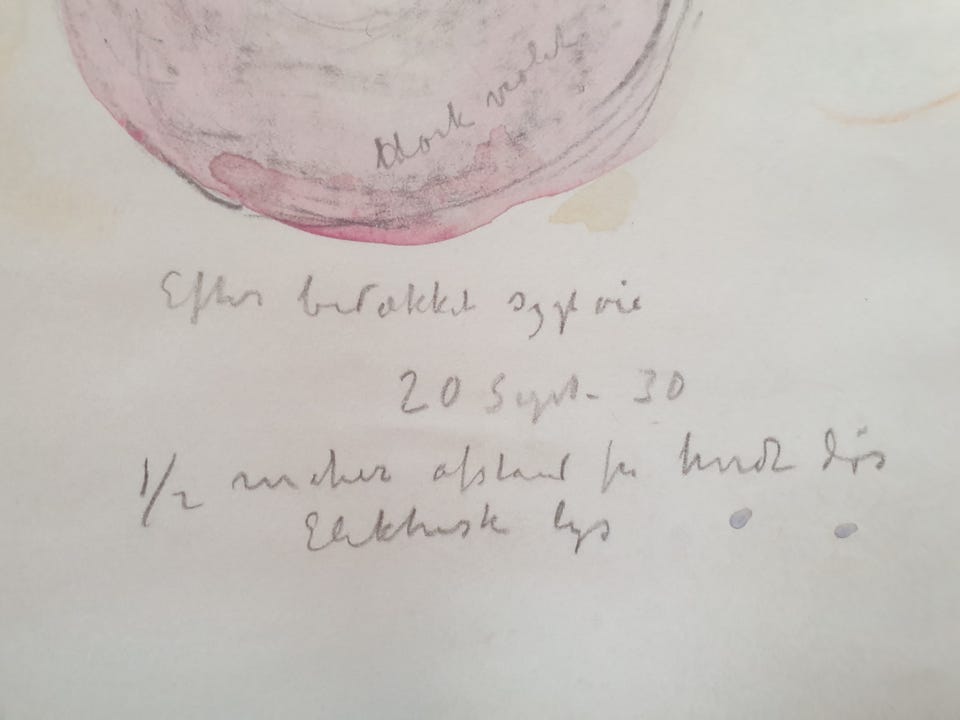 Mørk violet
Efter bedækket sygt øie
20 Sept. 30
1/2 meter afstand fra hvidt
Elektrisk lys